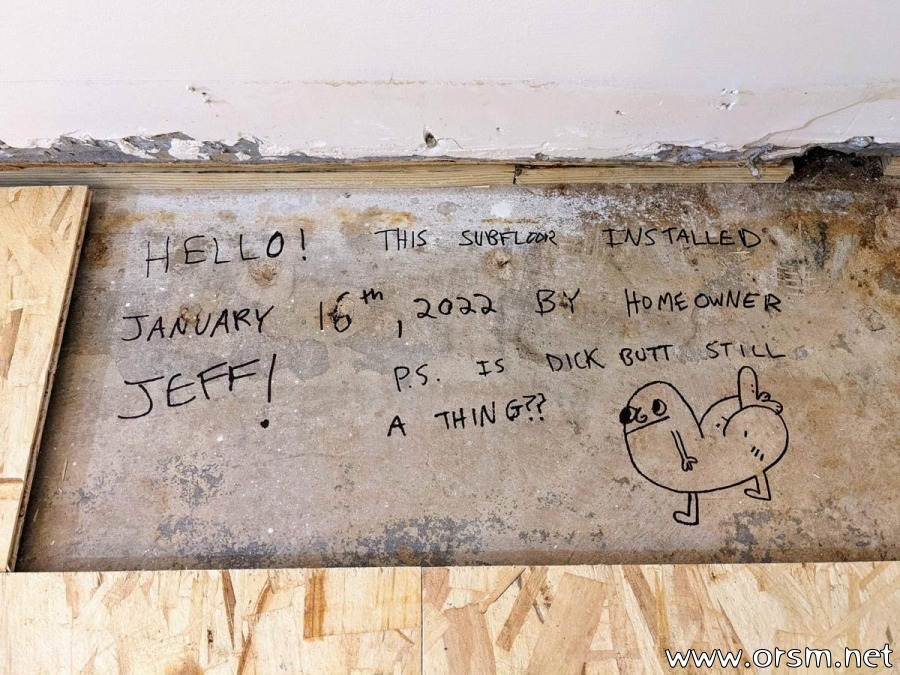 HELLO! THIS SUBFLOOR INSTALLED
JANUARY 16th, 2022 BY HOMEOWNER
JEFF! P.S. IS DICK BUTT STILL
A THING??
www.orsm.net